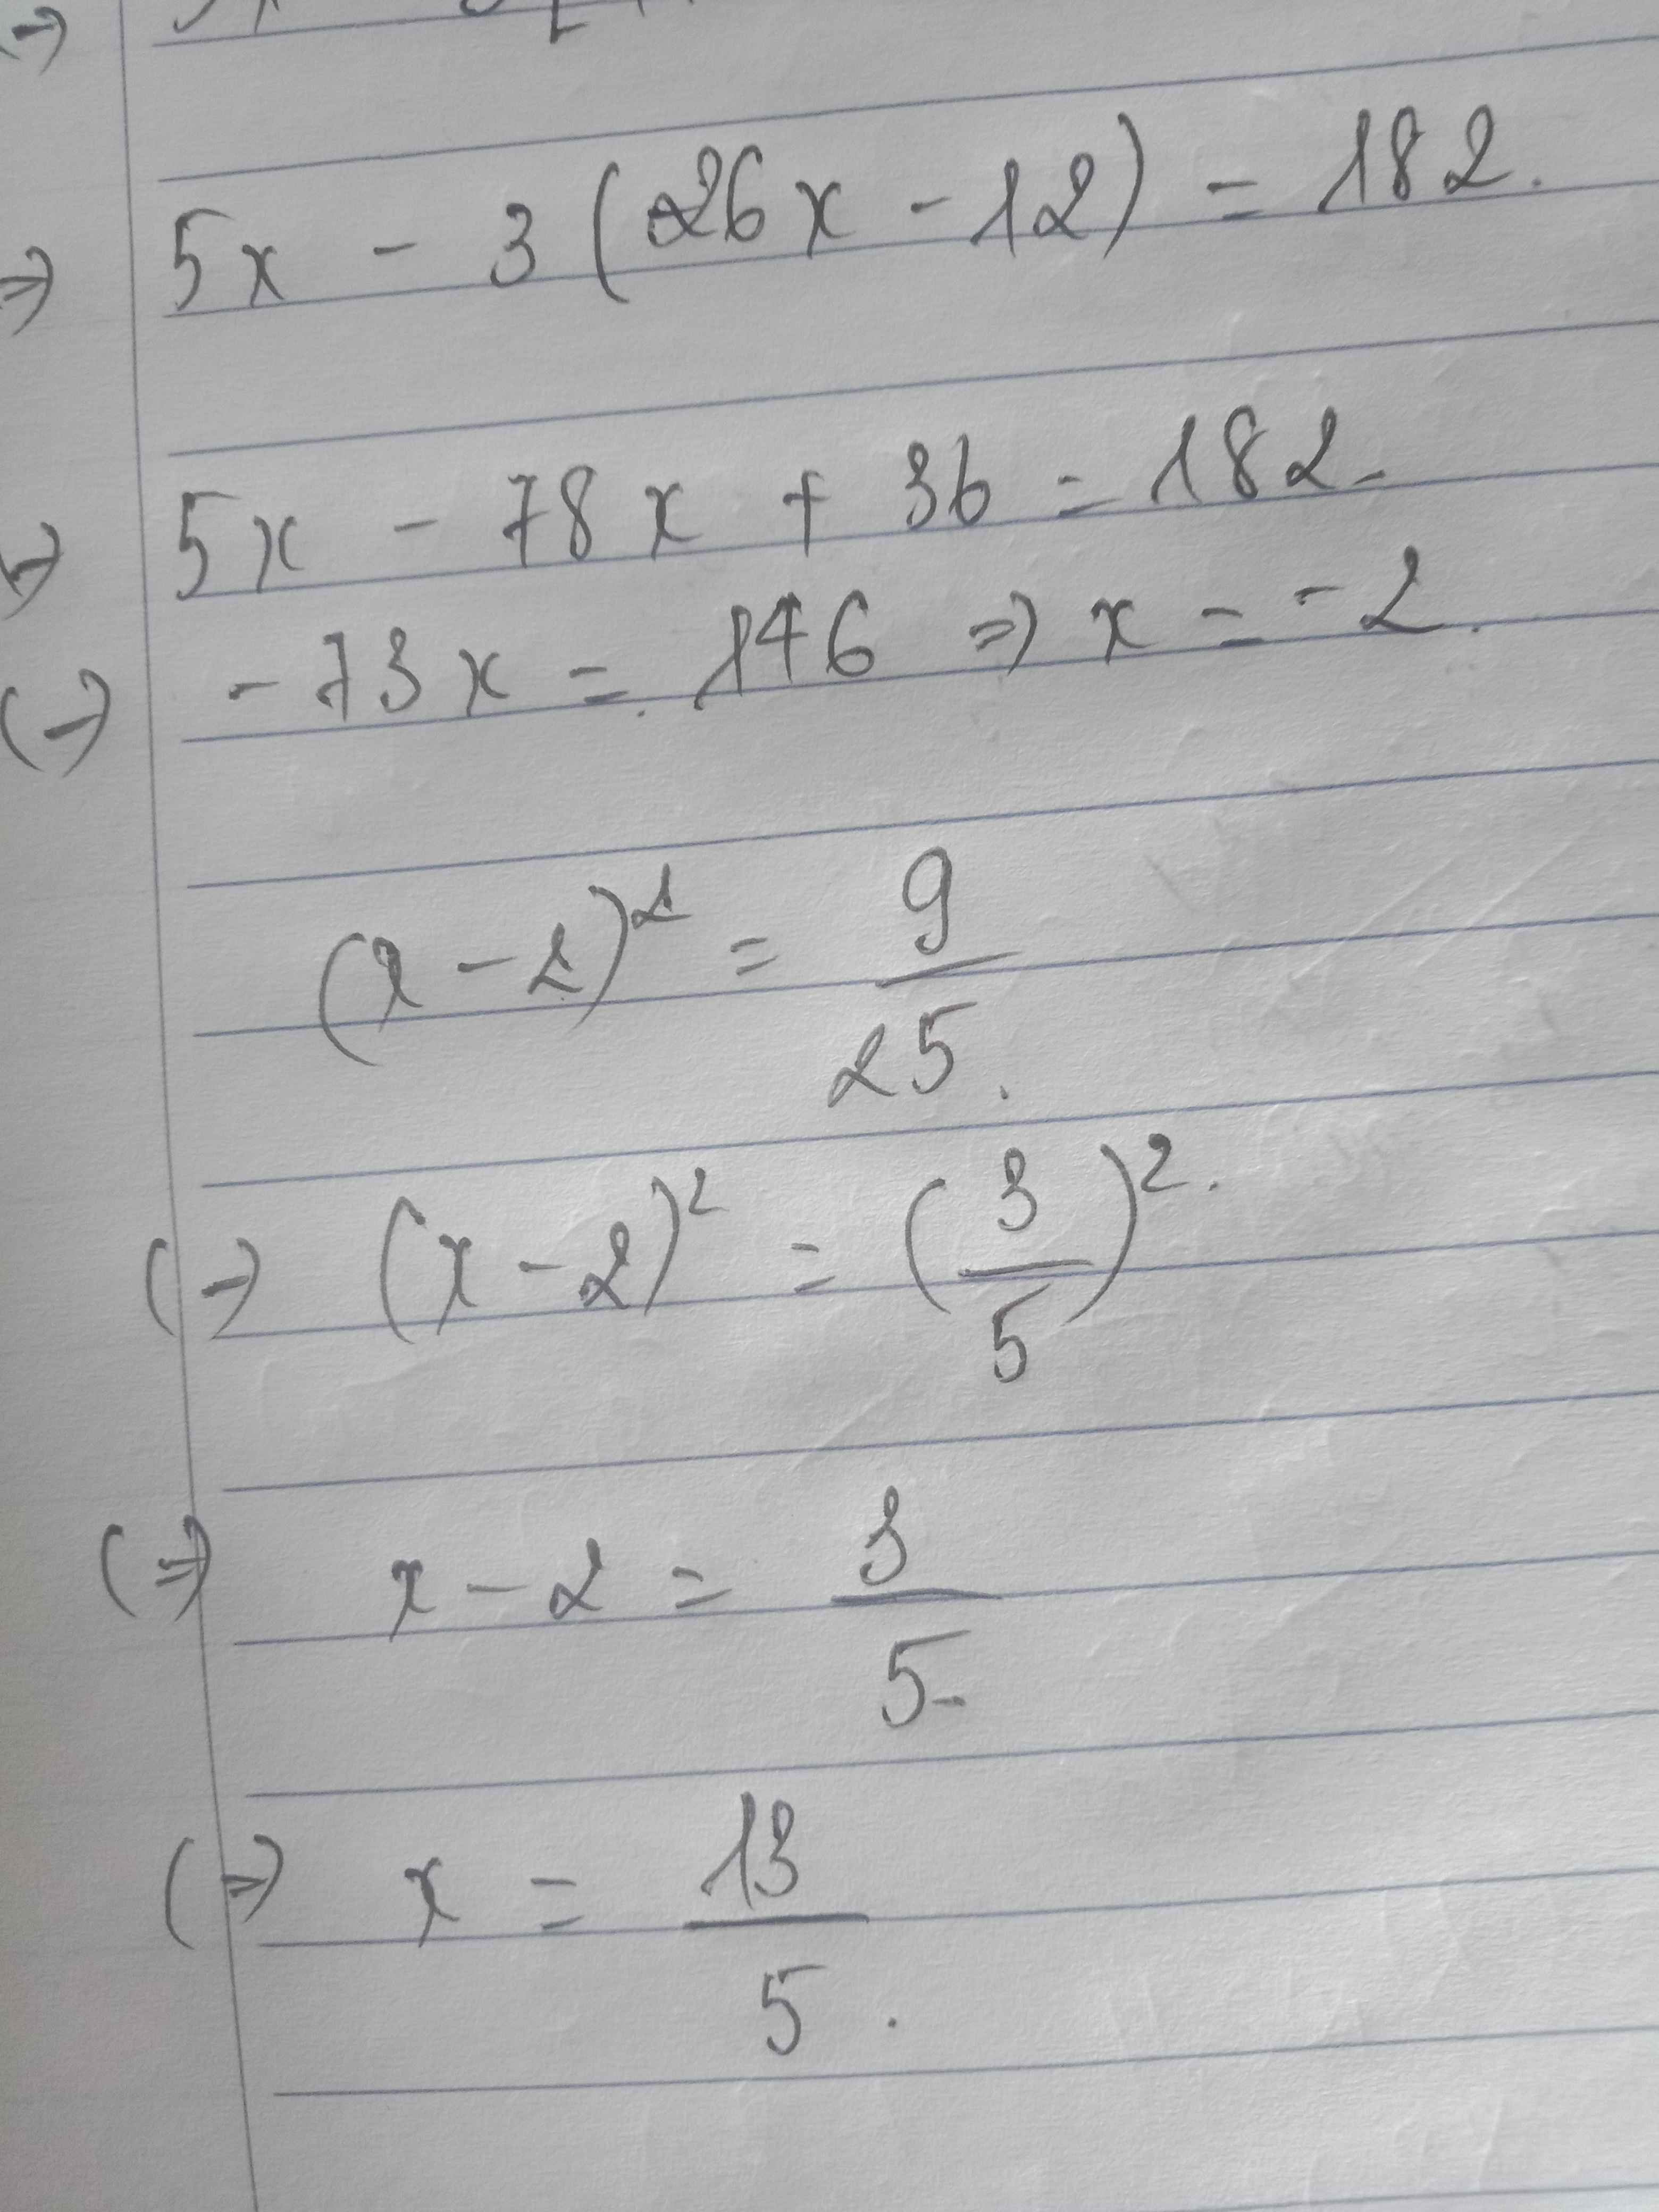 ⇒ 5x - 3 (26x - 12) = 182.
↔ 5x - 78x + 36 = 182.
(→) - 73x = 146 ⇒ x = -2.
(x - 2)² = 9/25.
(→) (x - 2)² = (3/5)².
(⇒) x - 2 = 3/5.
(⇒) x = 13/5.